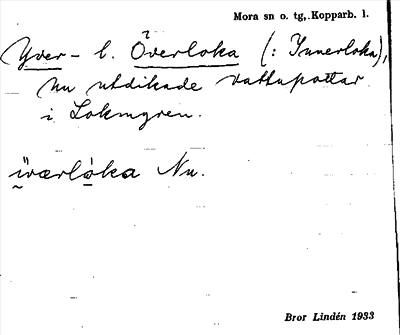 Mora sn o. tg, Kopparb. l.
Yver- l. Överloka (: Innerloka),
nu utdikade vattupottar
i Lokmyren.
ìværlòka Nu.
Bror Lindén 1933